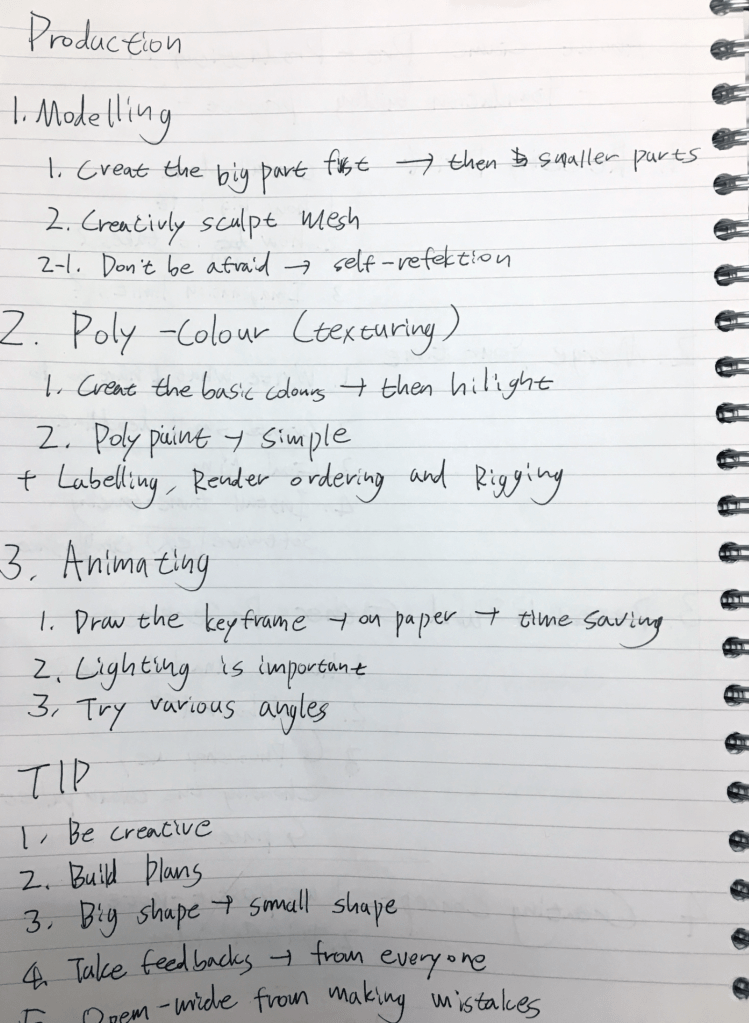 Production
1. Modelling
1. Creat the big part first → then smaller parts
2. Creativly sculpt mesh
2-1. Don't be afraid → self-refektion
2. Poly-Colour (texturing)
1. Creat the basic colours → then hilight
2. Polypaint → simple
+ Labelling, Render ordering and Rigging
3. Animating
1. Draw the keyframe → on paper → time saving
2. Lighting is important
3. Try various angles
TIP
1. Be creative
2. Build plans
3. Big shape → small shape
4. Take feedbacks → from everyone
5. Opem-wide from making mistakes